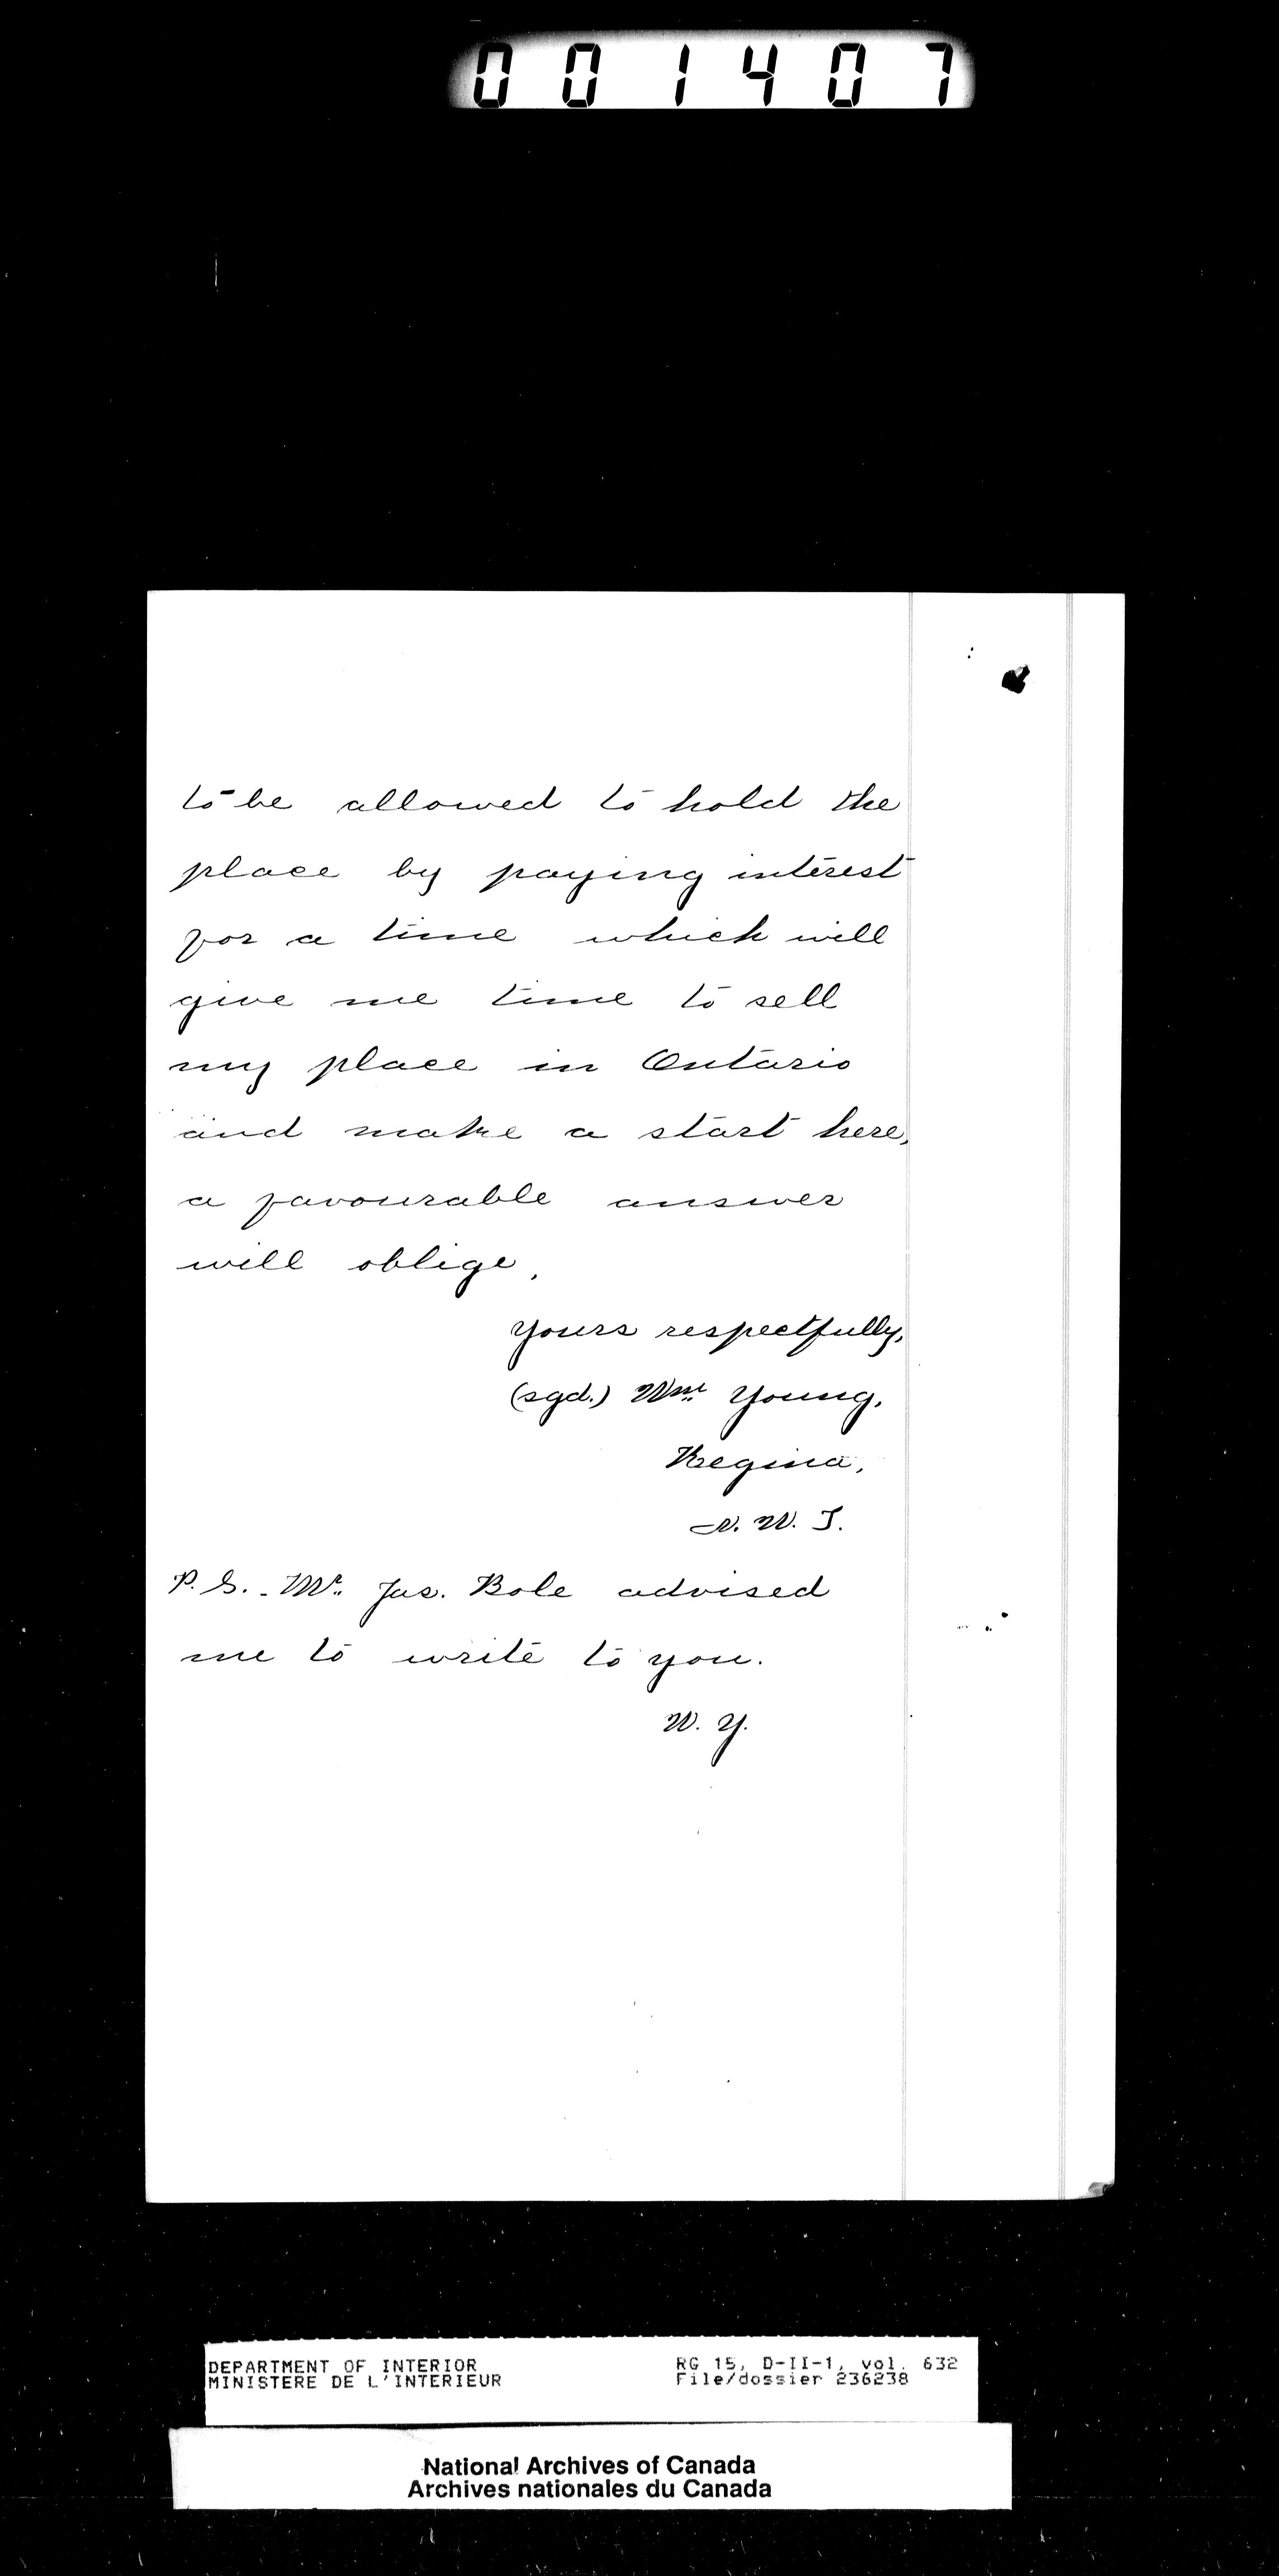 001407
to be allowed to hold the
place by paying interest
for a time which will
give me time to sell
my place in Ontario
and make a start here,
a favourable answer
will oblige,
Yours respectfully,
(sgd.) Wm. Young,
Regina,
N. W. T.
P. S. - Mr. Jas. Bole advised
me to write to you.
W. Y.
DEPARTMENT OF INTERIOR
MINISTERE DE L'INTERIEUR
RG 15, D-II-1, vol. 632
File/dossier 236238
National Archives of Canada
Archives nationales du Canada